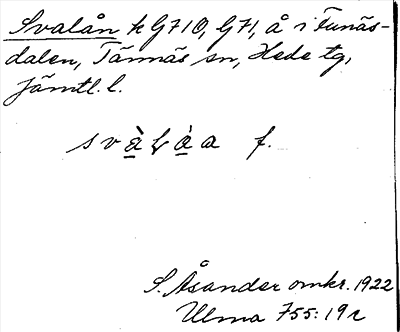 Svalån k G710, G71, å i Funäs-
dalen, Tännäs sn, Hede tg,
Jämtl. l.
f.
S. Åsander omkr. 1922
Ulma 755:19r